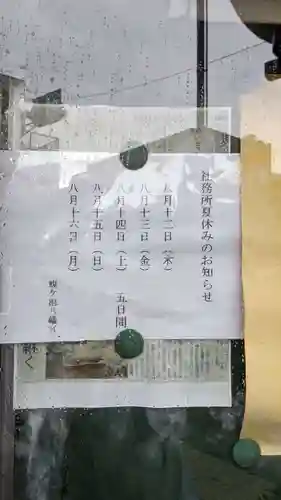 社務所夏休みのお知らせ
八月十二日（木）
八月十三日（金）
八月十四日（土）　五日間
八月十五日（日）
八月十六日（月）